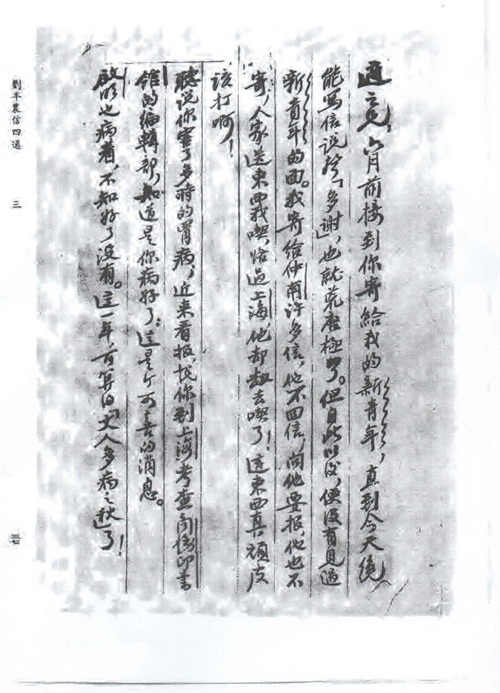 適之兄：六月前接到你寄給我的新青年，直到今天纔
能寫信說聲「多謝」，也就荒唐極了。但自此以後，便沒有見過
新青年的面。我寄給仲甫許多信，他不回信，問他要報，他也不
寄；人家送東西我喫，路過上海，他却劫去喫了！這東西真頑皮
該打啊！
聽說你害了多時的胃病，近來看報，說你到上海考查商務印書
館的編輯部，知道是你病好了：這是个可喜的消息。
啟明也病着，不知好了沒有。這一年，可算得「文人多病之秋」了！
劉半農信四通
三